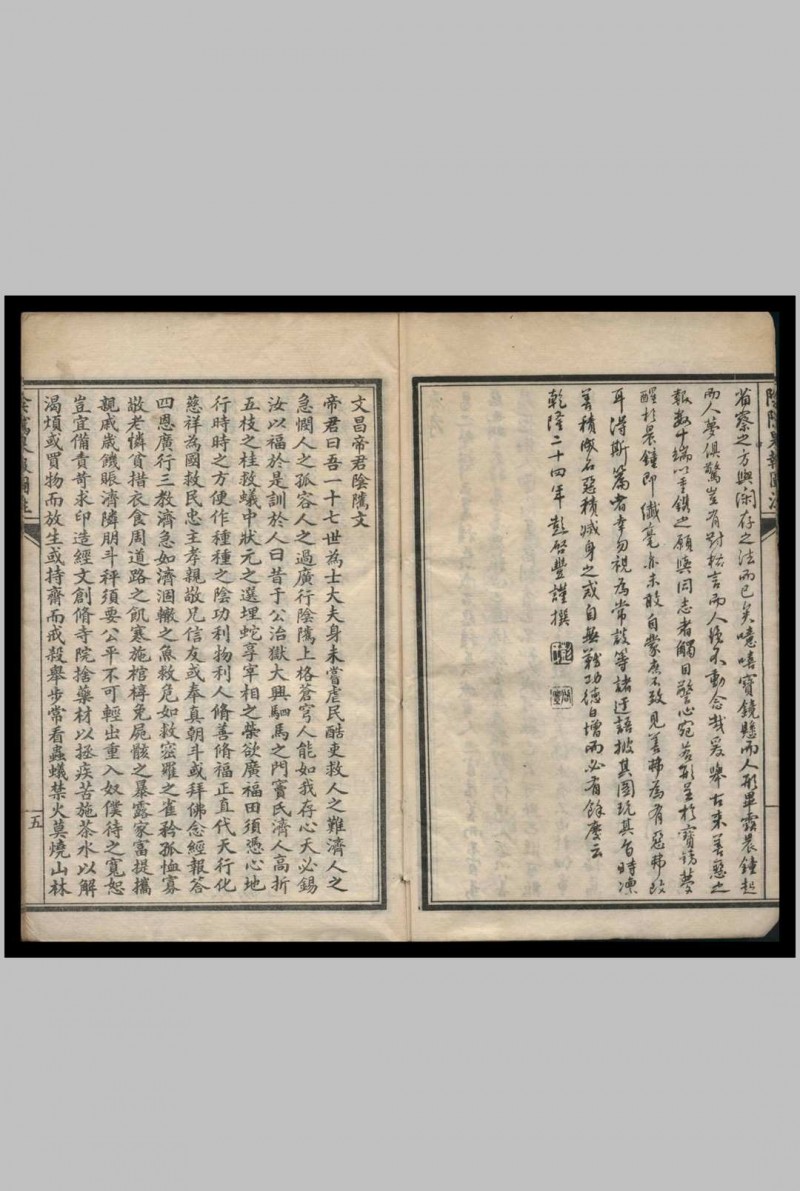 陰隲果報圖注
省察之方與閑存之法而已矣噫嘻寶鏡懸而人形畢露晨鐘起
而人夢俱驚豈有對格言而人猶不動念哉爰舉古來善惡之
報數十端以重鐫之願與同志者觸目警心宛若形呈於寶鏡夢
醒於晨鐘即纖毫亦未敢自蒙庶不致見善弗為有惡弗改
耳得斯篇者幸勿視為常談等諸迂語披其圖玩其旨時凜
善積成名惡積滅身之戒自無難功德日增而必有餘慶云
乾隆二十四年彭啓豐謹撰
文昌帝君陰隲文
帝君曰吾一十七世為士大夫身未嘗虐民酷吏救人之難濟人之
急憫人之孤容人之過廣行陰隲上格蒼穹人能如我存心天必錫
汝以福於是訓於人曰昔于公治獄大興駟馬之門竇氏濟人高折
五枝之桂救蟻中狀元之選埋蛇享宰相之榮欲廣福田須憑心地
行時時之方便作種種之陰功利物利人脩善脩福正直代天行化
慈祥為國救民忠主孝親敬兄信友或奉真朝斗或拜佛念經報答
四恩廣行三教濟急如濟涸轍之魚救危如救密羅之雀矜孤恤寡
敬老憐貧措衣食周道路之飢寒施棺槨免屍骸之暴露家富提攜
親戚歲饑賑濟隣朋斗秤須要公平不可輕出重入奴僕待之寬恕
豈宜備責苛求印造經文創脩寺院捨藥材以拯疾苦施茶水以解
渴煩或買物而放生或持齋而戒殺舉步常看蟲蟻禁火莫燒山林
陰隲果報圖注
五